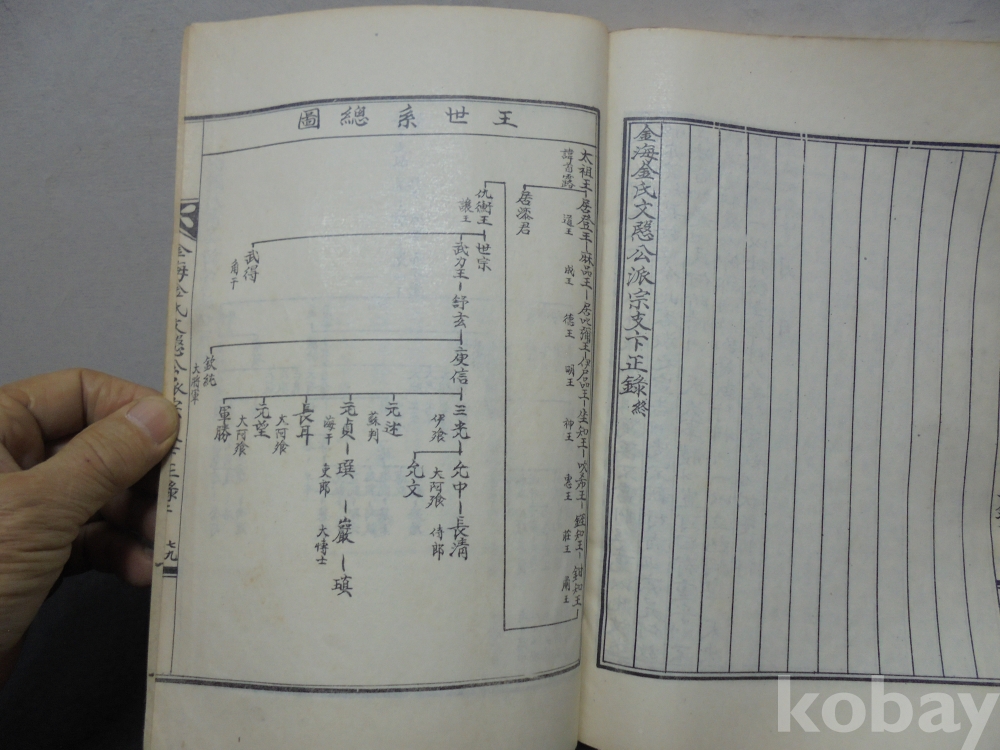 金海金氏文愍公派宗支卞正錄終
王世系總圖
太祖王 諱首露
居登王 道王
麻品王 成王
居叱彌王 德王
伊尸品王 明王
坐知王 神王
吹希王 惠王
銍知王 莊王
鉗知王 肅王
居漆君
仇衝王 讓王
世宗
武力王
舒玄
庾信
武得 角干
欽純 大將軍
三光 伊飱
允中 大阿飱
長清 侍郎
允文
元述 蘇判
元貞 海干
瑛 吏郎
巖 大博士
瑱
長耳 大阿飱
元望 大阿飱
軍勝
七九
kobay